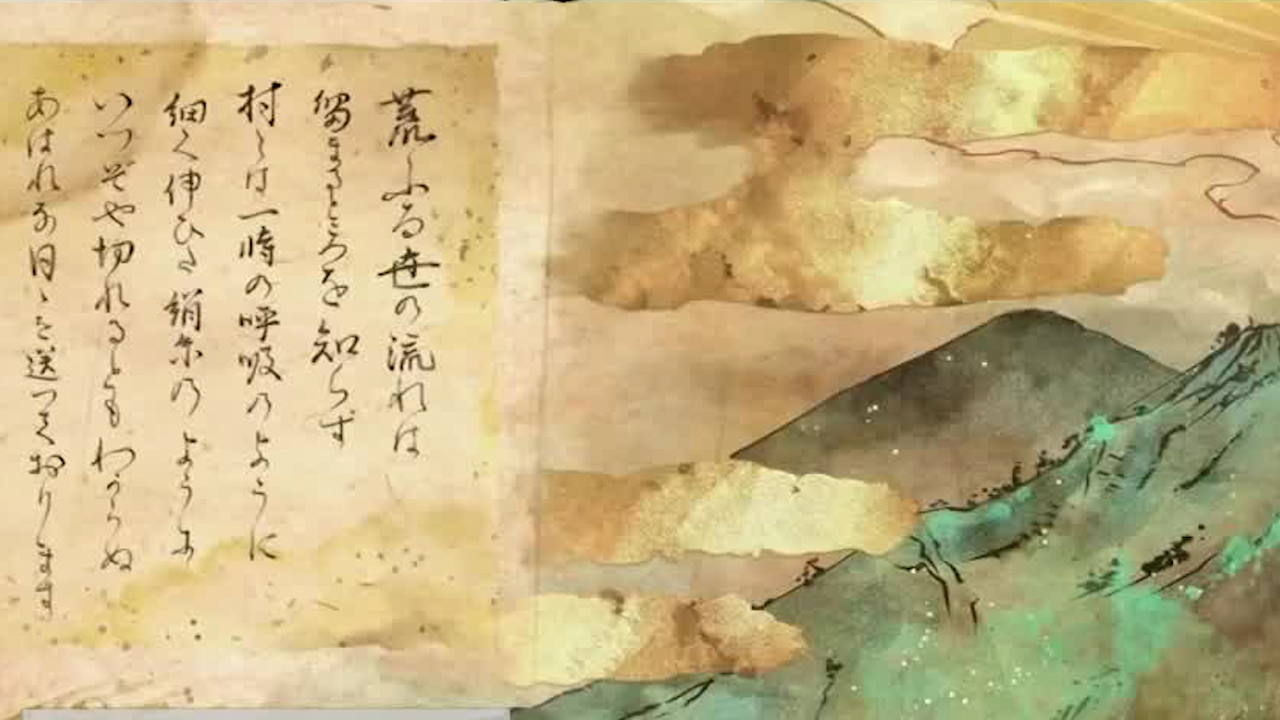 荒ふる世の流れは
留まるところを知らず
村々は一時の呼吸のように
細く伸びた絹糸の ように
いつぞや切れるとも わからぬ
あはれな日々を送っており ます